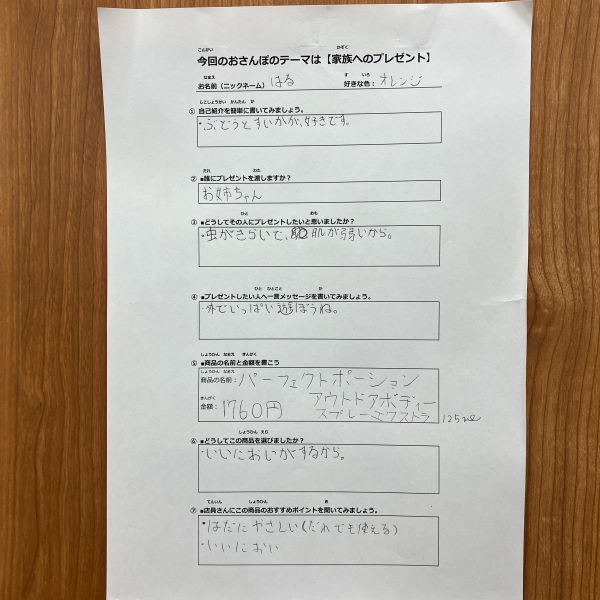 今回のおさんぽのテーマは【家族へのプレゼント】
お名前（ニックネーム） はる 好きな色： オレンジ
① 自己紹介を簡単に書いてみましょう。
・ぶどうとすいかが、好きです。
② ■誰にプレゼントを渡しますか？
お姉ちゃん
③ ■どうしてその人にプレゼントしたいと思いましたか？
・虫がきらいで、肌が弱いから。
④ ■プレゼントしたい人へ一言メッセージを書いてみましょう。
・外でいっぱい遊ぼうね。
⑤ ■商品の名前と金額を書こう
商品の名前： パーフェクトポーション
アウトドアボディー
スプレーエクストラ 125ml
金額： 1760円
⑥ ■どうしてこの商品を選びましたか？
・いいにおいがするから。
⑦ ■店員さんにこの商品のおすすめポイントを聞いてみましょう。
・はだにやさしい（だれでも使える）
・いいにおい